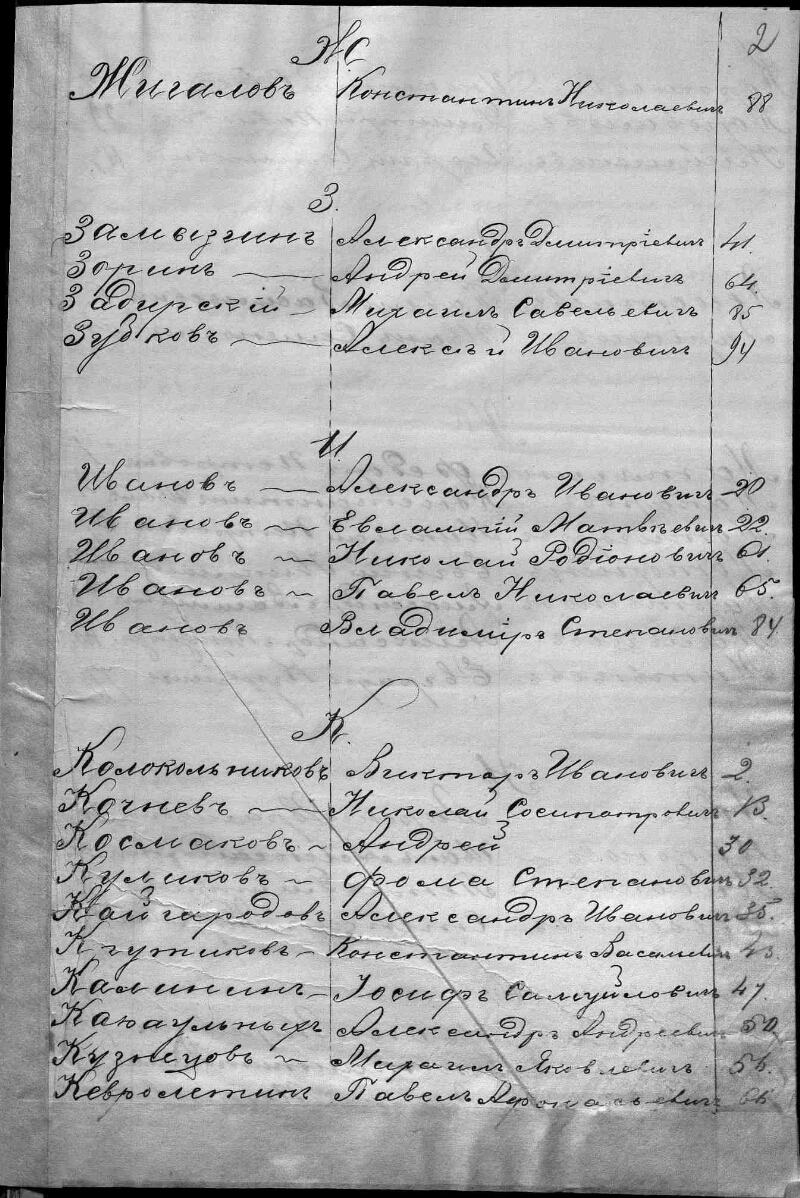 2
Ж
Жигаловъ Константинъ Николаевич 88
З.
Замызгинъ Александръ Дмитріевич 41.
Зоринъ — Андрей Дмитріевичъ 64.
Задирскій — Михаилъ Савельевичъ 85
Зубковъ — Алексѣй Ивановичъ 94
И.
Ивановъ — Александръ Ивановичъ 20
Ивановъ — Евлампій Матвѣевичъ 22.
Ивановъ — Николай Родіоновичъ 61.
Ивановъ — Павелъ Николаевичъ 65.
Ивановъ Владиміръ Степановичъ 84.
К.
Колокольниковъ Викторъ Ивановичъ 2.
Кочневъ — Николай Сосипатровичъ 13.
Космаковъ — Андрей 30
Куликовъ — Фома Степановичъ 32.
Кайгародовъ Александръ Ивановичъ 35.
Константинъ
Калининъ — Іосифъ Самуйловичъ 47.
Караульныхъ Александръ Андреевичъ 50
Кузнецовъ — Михаилъ Яковлевичъ 56.
Кевролетинъ Павелъ Афонасьевичъ 66.